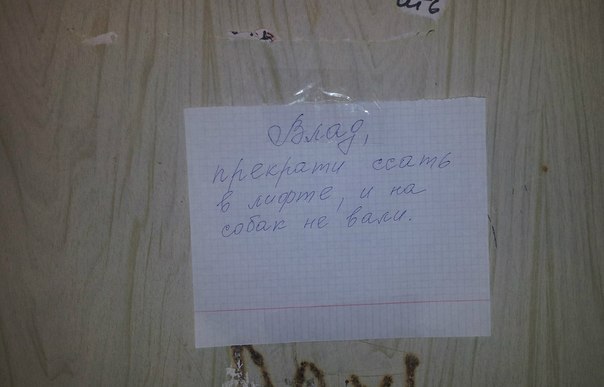 Влад,
прекрати ссать
в лифте, и на
собак не вали.